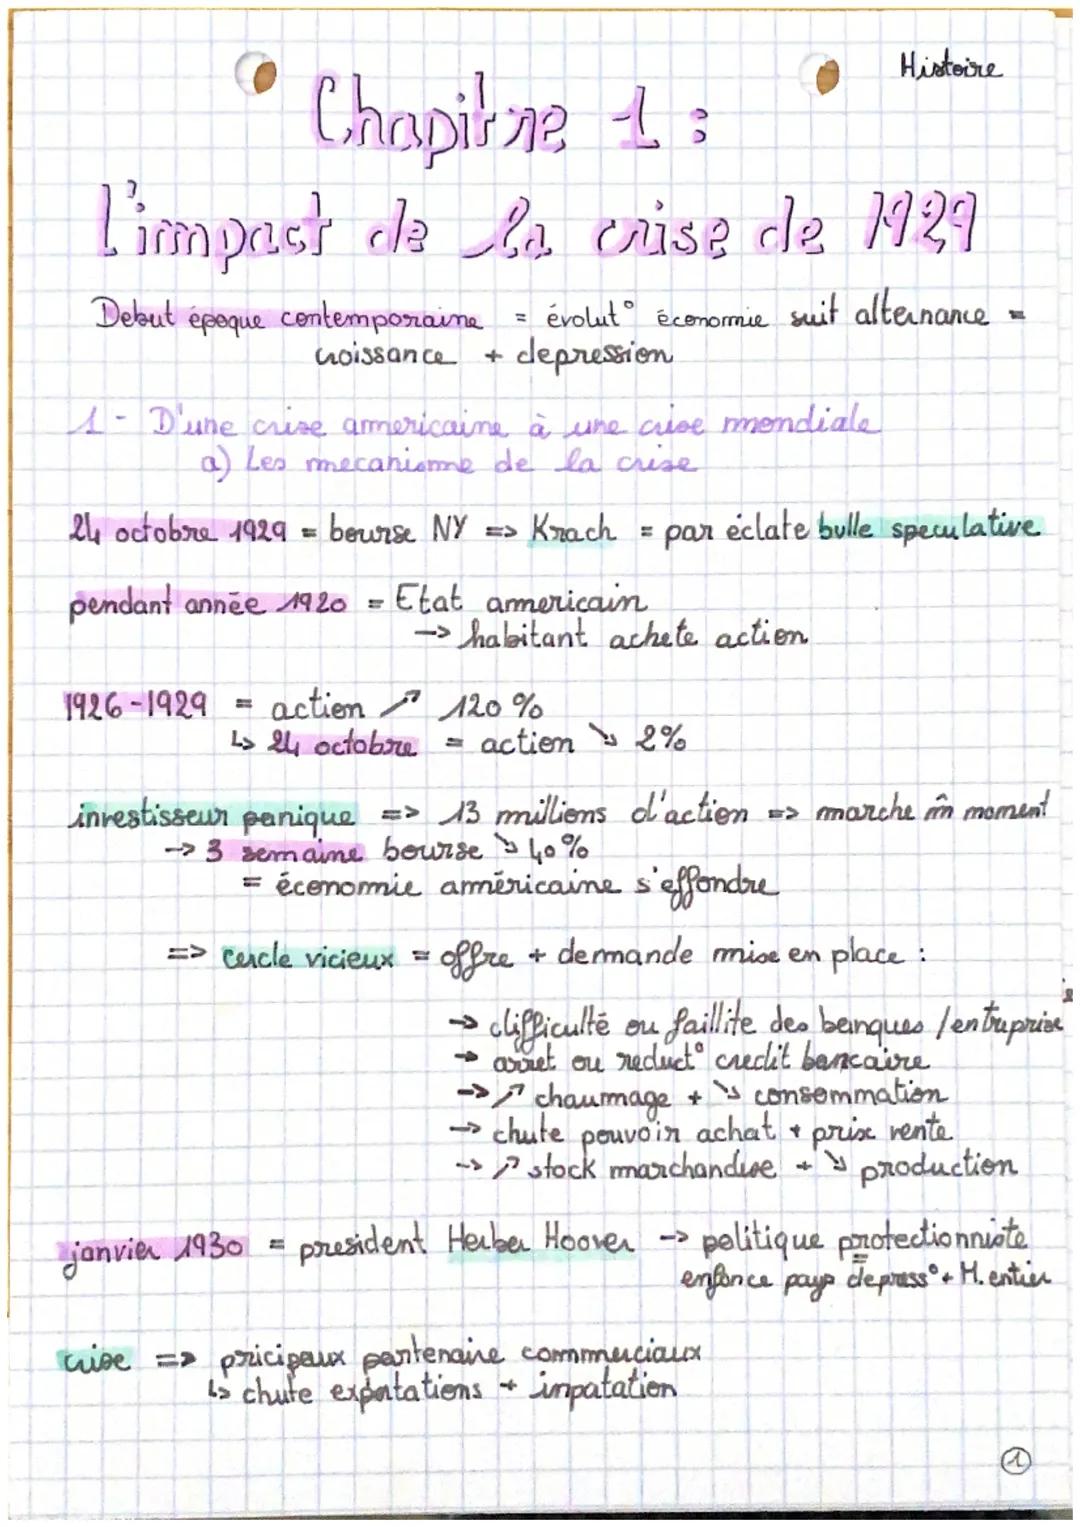 Histoire
Chapitre 1 :
L'impact de la crise de 1929
Debut époque contemporaine = évolut° économie suit alternance =
croissance + depression
1 - D'une crise americaine à une crise mondiale
a) Les mecanisme de la crise
24 octobre 1929 = bourse NY => Krach = par éclate bulle speculative
pendant année 1920 = Etat americain
-> habitant achete action
1926-1929 = action ↗ 120 %
↳ 24 octobre = action ↘ 2%
investisseur panique => 13 millions d'action => marche m̂ moment
-> 3 semaine bourse ↘ 40%
= économie américaine s'effondre
=> cercle vicieux = offre + demande mise en place :
-> difficulté ou faillite des banques / entreprise
-> arret ou reduct° credit bancaire
-> ↗ chaumage + ↘ consommation
-> chute pouvoir achat + prix vente
-> ↗ stock marchandise + ↘ production
janvier 1930 = president Herber Hoover -> politique protectionniste
=
enfonce pays depress° + M. entier
crise => pricipaux partenaire commerciaux
↳ chute expotations + inpatation
1